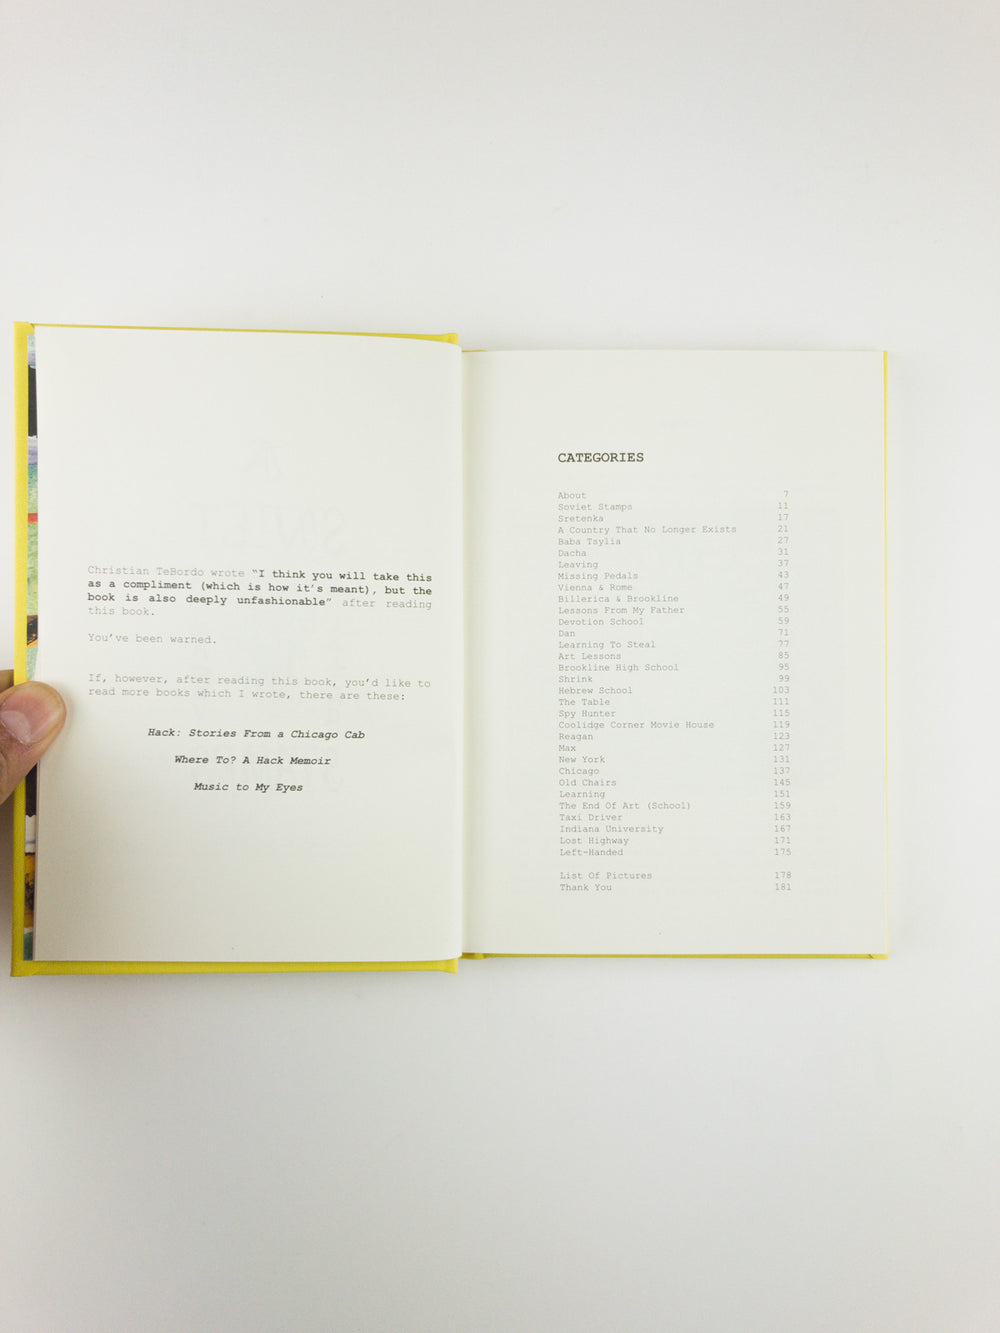 Christian TeBordo wrote "I think you will take this
as a compliment (which is how it's meant), but the
book is also deeply unfashionable" after reading
this book.
You've been warned.
If, however, after reading this book, you'd like to
read more books which I wrote, there are these:
Hack: Stories From a Chicago Cab
Where To? A Hack Memoir
Music to My Eyes
CATEGORIES
About 7
Soviet Stamps 11
Sretenka 17
A Country That No Longer Exists 21
Baba Tsylia 27
Dacha 31
Leaving 37
Missing Pedals 43
Vienna & Rome 47
Billerica & Brookline 49
Lessons From My Father 55
Devotion School 59
Dan 71
Learning To Steal 77
Art Lessons 85
Brookline High School 95
Shrink 99
Hebrew School 103
The Table 111
Spy Hunter 115
Coolidge Corner Movie House 119
Reagan 123
Max 127
New York 131
Chicago 137
Old Chairs 145
Learning 151
The End Of Art (School) 159
Taxi Driver 163
Indiana University 167
Lost Highway 171
Left-Handed 175
List Of Pictures 178
Thank You 181